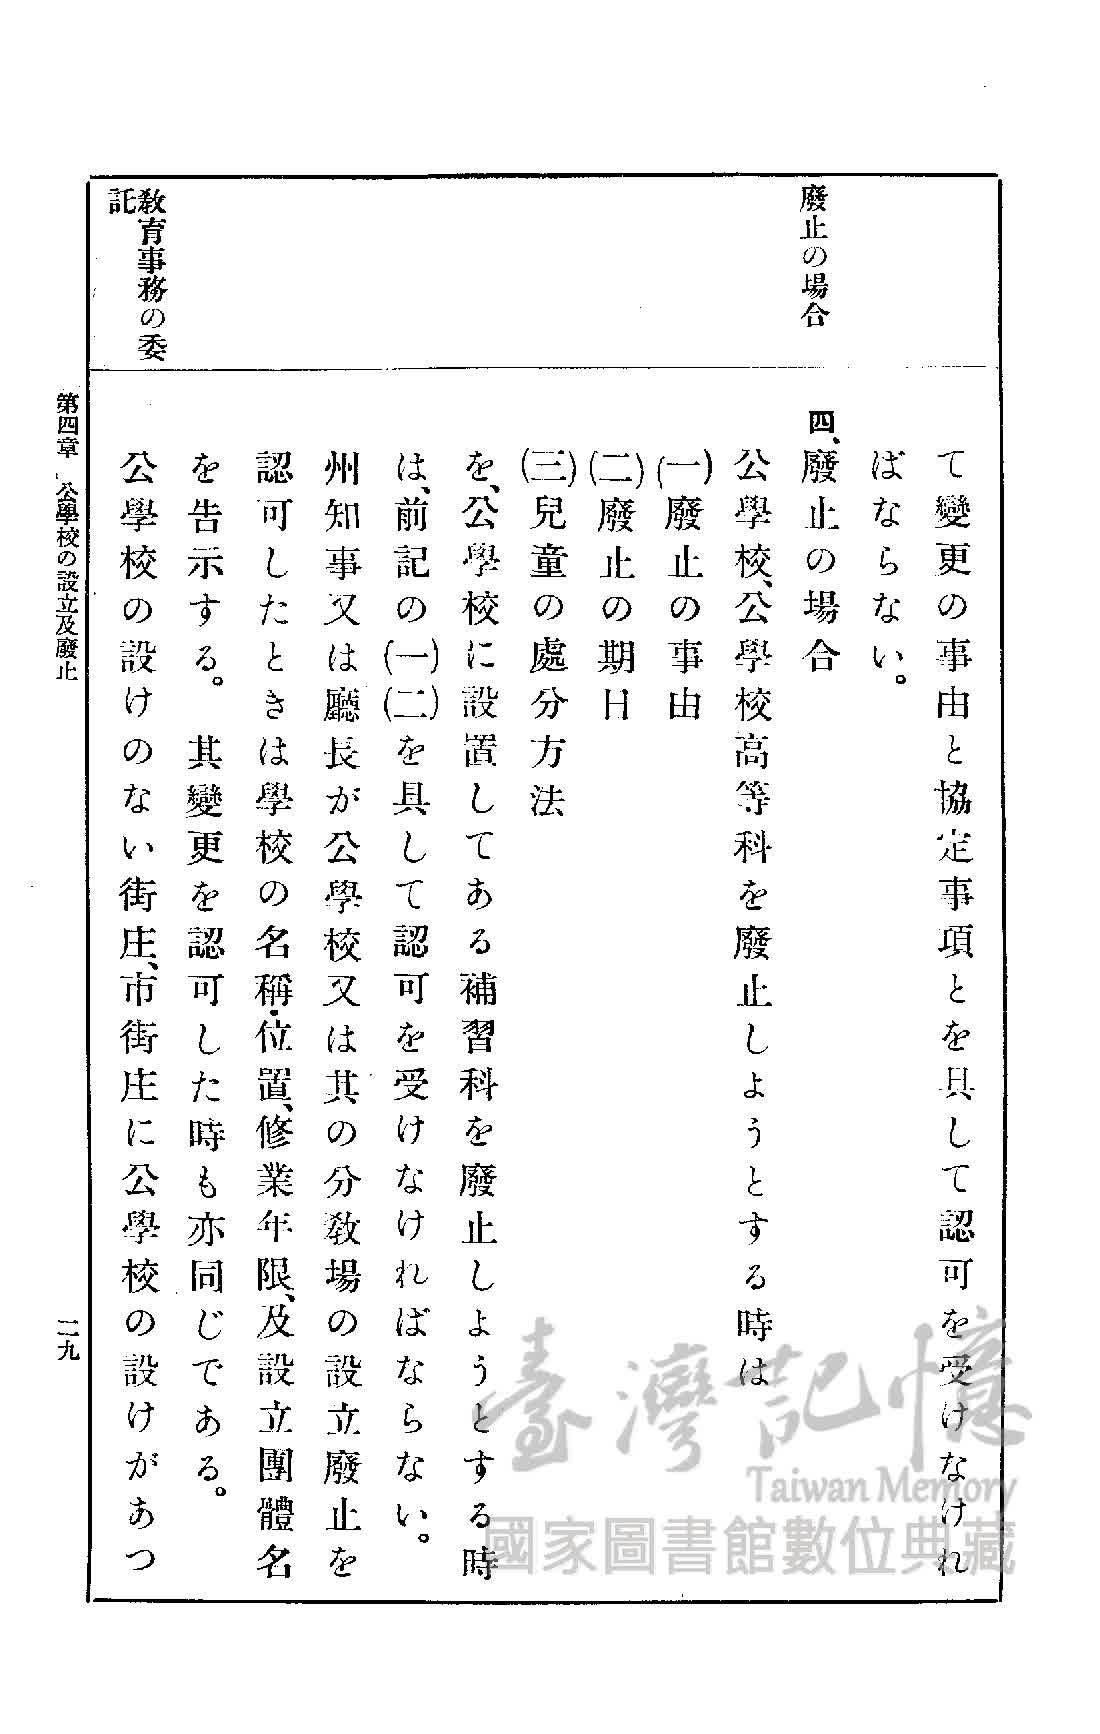 廢止の場合
て變更の事由と協定事項とを具して認可を受けなけれ
ばならない。
四、廢止の場合
公學校、公學校高等科を廢止しようとする時は
(一)廢止の事由
(二)廢止の期日
(三)兒童の處分方法
を、公學校に設置してある補習科を廢止しようとする時
は、前記の(一)(二)を具して認可を受けなければならない。
州知事又は廳長が公學校又は其の分敎場の設立廢止を
認可したときは學校の名稱・位置、修業年限、及設立團體名
を告示する。其變更を認可した時も亦同じである。
敎育事務の委
託
公學校の設けのない街庄、市街庄に公學校の設けがあつ
第四章 公學校の設立及廢止
二九
臺灣記憶
Taiwan Memory
國家圖書館數位典藏